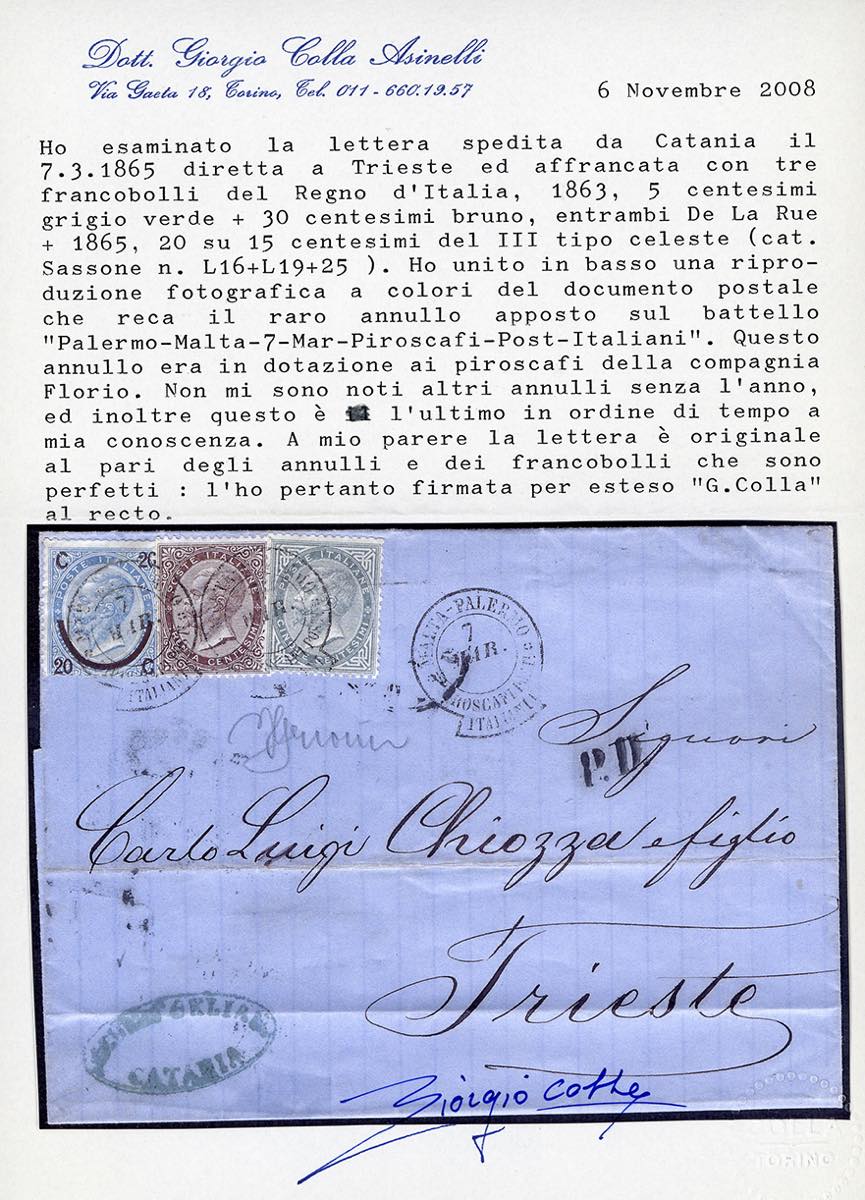 Dott. Giorgio Colla Asinelli
Via Gaeta 18, Torino, Tel. 011 - 660.19.57
6 Novembre 2008
Ho esaminato la lettera spedita da Catania il
7.3.1865 diretta a Trieste ed affrancata con tre
francobolli del Regno d'Italia, 1863, 5 centesimi
grigio verde + 30 centesimi bruno, entrambi De La Rue
+ 1865, 20 su 15 centesimi del III tipo celeste (cat.
Sassone n. L16+L19+25 ). Ho unito in basso una ripro-
duzione fotografica a colori del documento postale
che reca il raro annullo apposto sul battello
"Palermo-Malta-7-Mar-Piroscafi-Post-Italiani". Questo
annullo era in dotazione ai piroscafi della compagnia
Florio. Non mi sono noti altri annulli senza l'anno,
ed inoltre questo è l'ultimo in ordine di tempo a
mia conoscenza. A mio parere la lettera è originale
al pari degli annulli e dei francobolli che sono
perfetti : l'ho pertanto firmata per esteso "G.Colla"
al recto.
C 20
POSTE ITALIANE
20 C
7
MAR.
ITALIANI
POSTE ITALIANE
CENTESIMI
MAR.
ITALIANE
CENTESIMI
MALTA-PALERMO
7
MAR.
PIROSCAFI
ITALIANI
Signori
P.D.
Carlo Luigi Chiozza e figlio
Trieste
CATANIA
Giorgio Colla
COLLA
TORINO